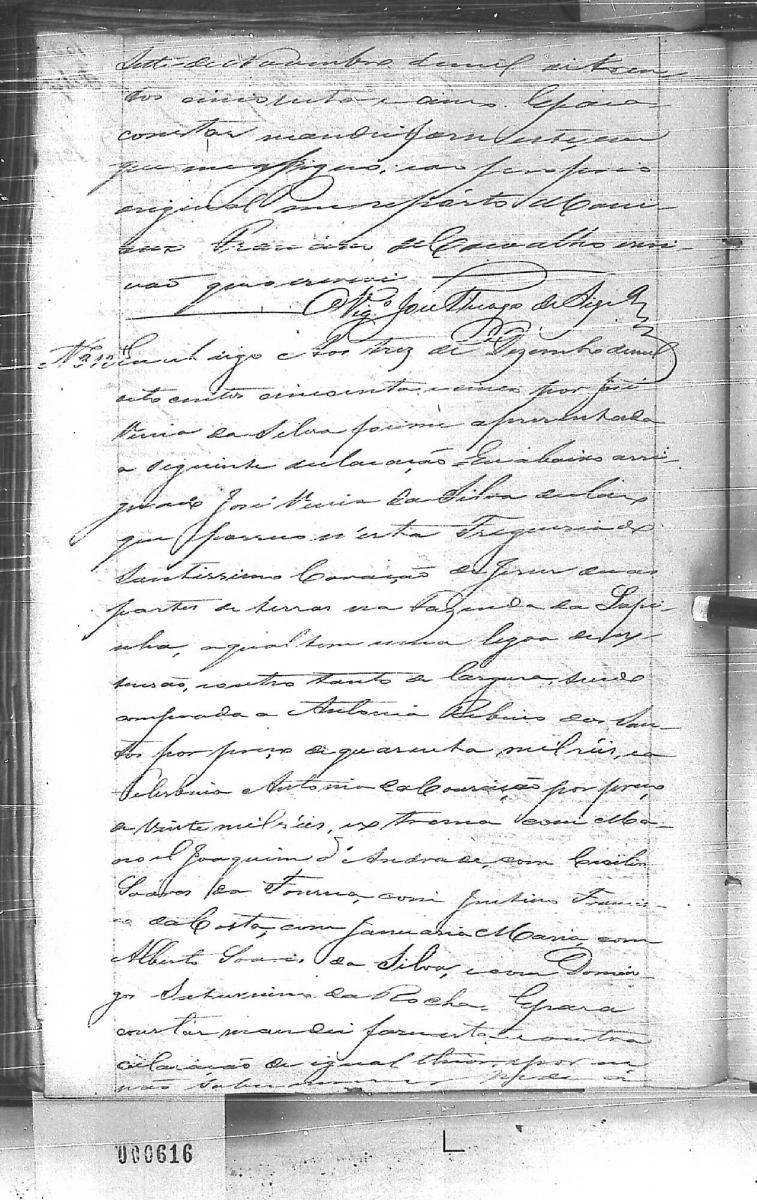 sette de Novembro de mil oito cen-
tos cincoenta e cinco. E para
constar mandei fazer este, em
que me assigno, e ao proprio
original me reporto. Mano-
el Francisco de Carvalho escri-
vão que escrevi
O Vigº José Thiago de
Nº Aos trez de Dezembro de mil
oito centos cincoenta e cinco por José
Vieira da Silva foi me aprezentada
a seguinte declaração. Eu abaixo assi-
gnado José Vieira da Silva declaro
que possuo n'esta Freguezia do
Santissimo Coração de Jesus duas
partes de terras na Fazenda da Lapi-
nha, a qual tem uma legoa de ex-
tensão, e outro tanto de largura, sendo
comprada a Antonia Ribeiro dos San-
tos por preço de quarenta mil réis, e a
Antonia da Conceição por preço
de vinte mil réis, extrema com Ma-
noel Joaquim d'Andrade, com
Soares da Fonseca, com Justino Francis-
co da Costa, com Januaria Maria, com
Alberto Soares da Silva, e com Domin-
gos Saturnino da Rocha. E para
constar mandei fazer esta e outra
declaração de igual theor, e por eu
não saber pedi a
000616